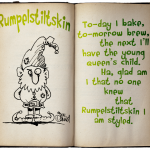 Rumpelstiltskin
To-day I bake,
to-morrow brew,
the next I'll
have the young
queen's child.
Ha, glad am
I that no one
knew
that
Rumpelstiltskin I
am styled.